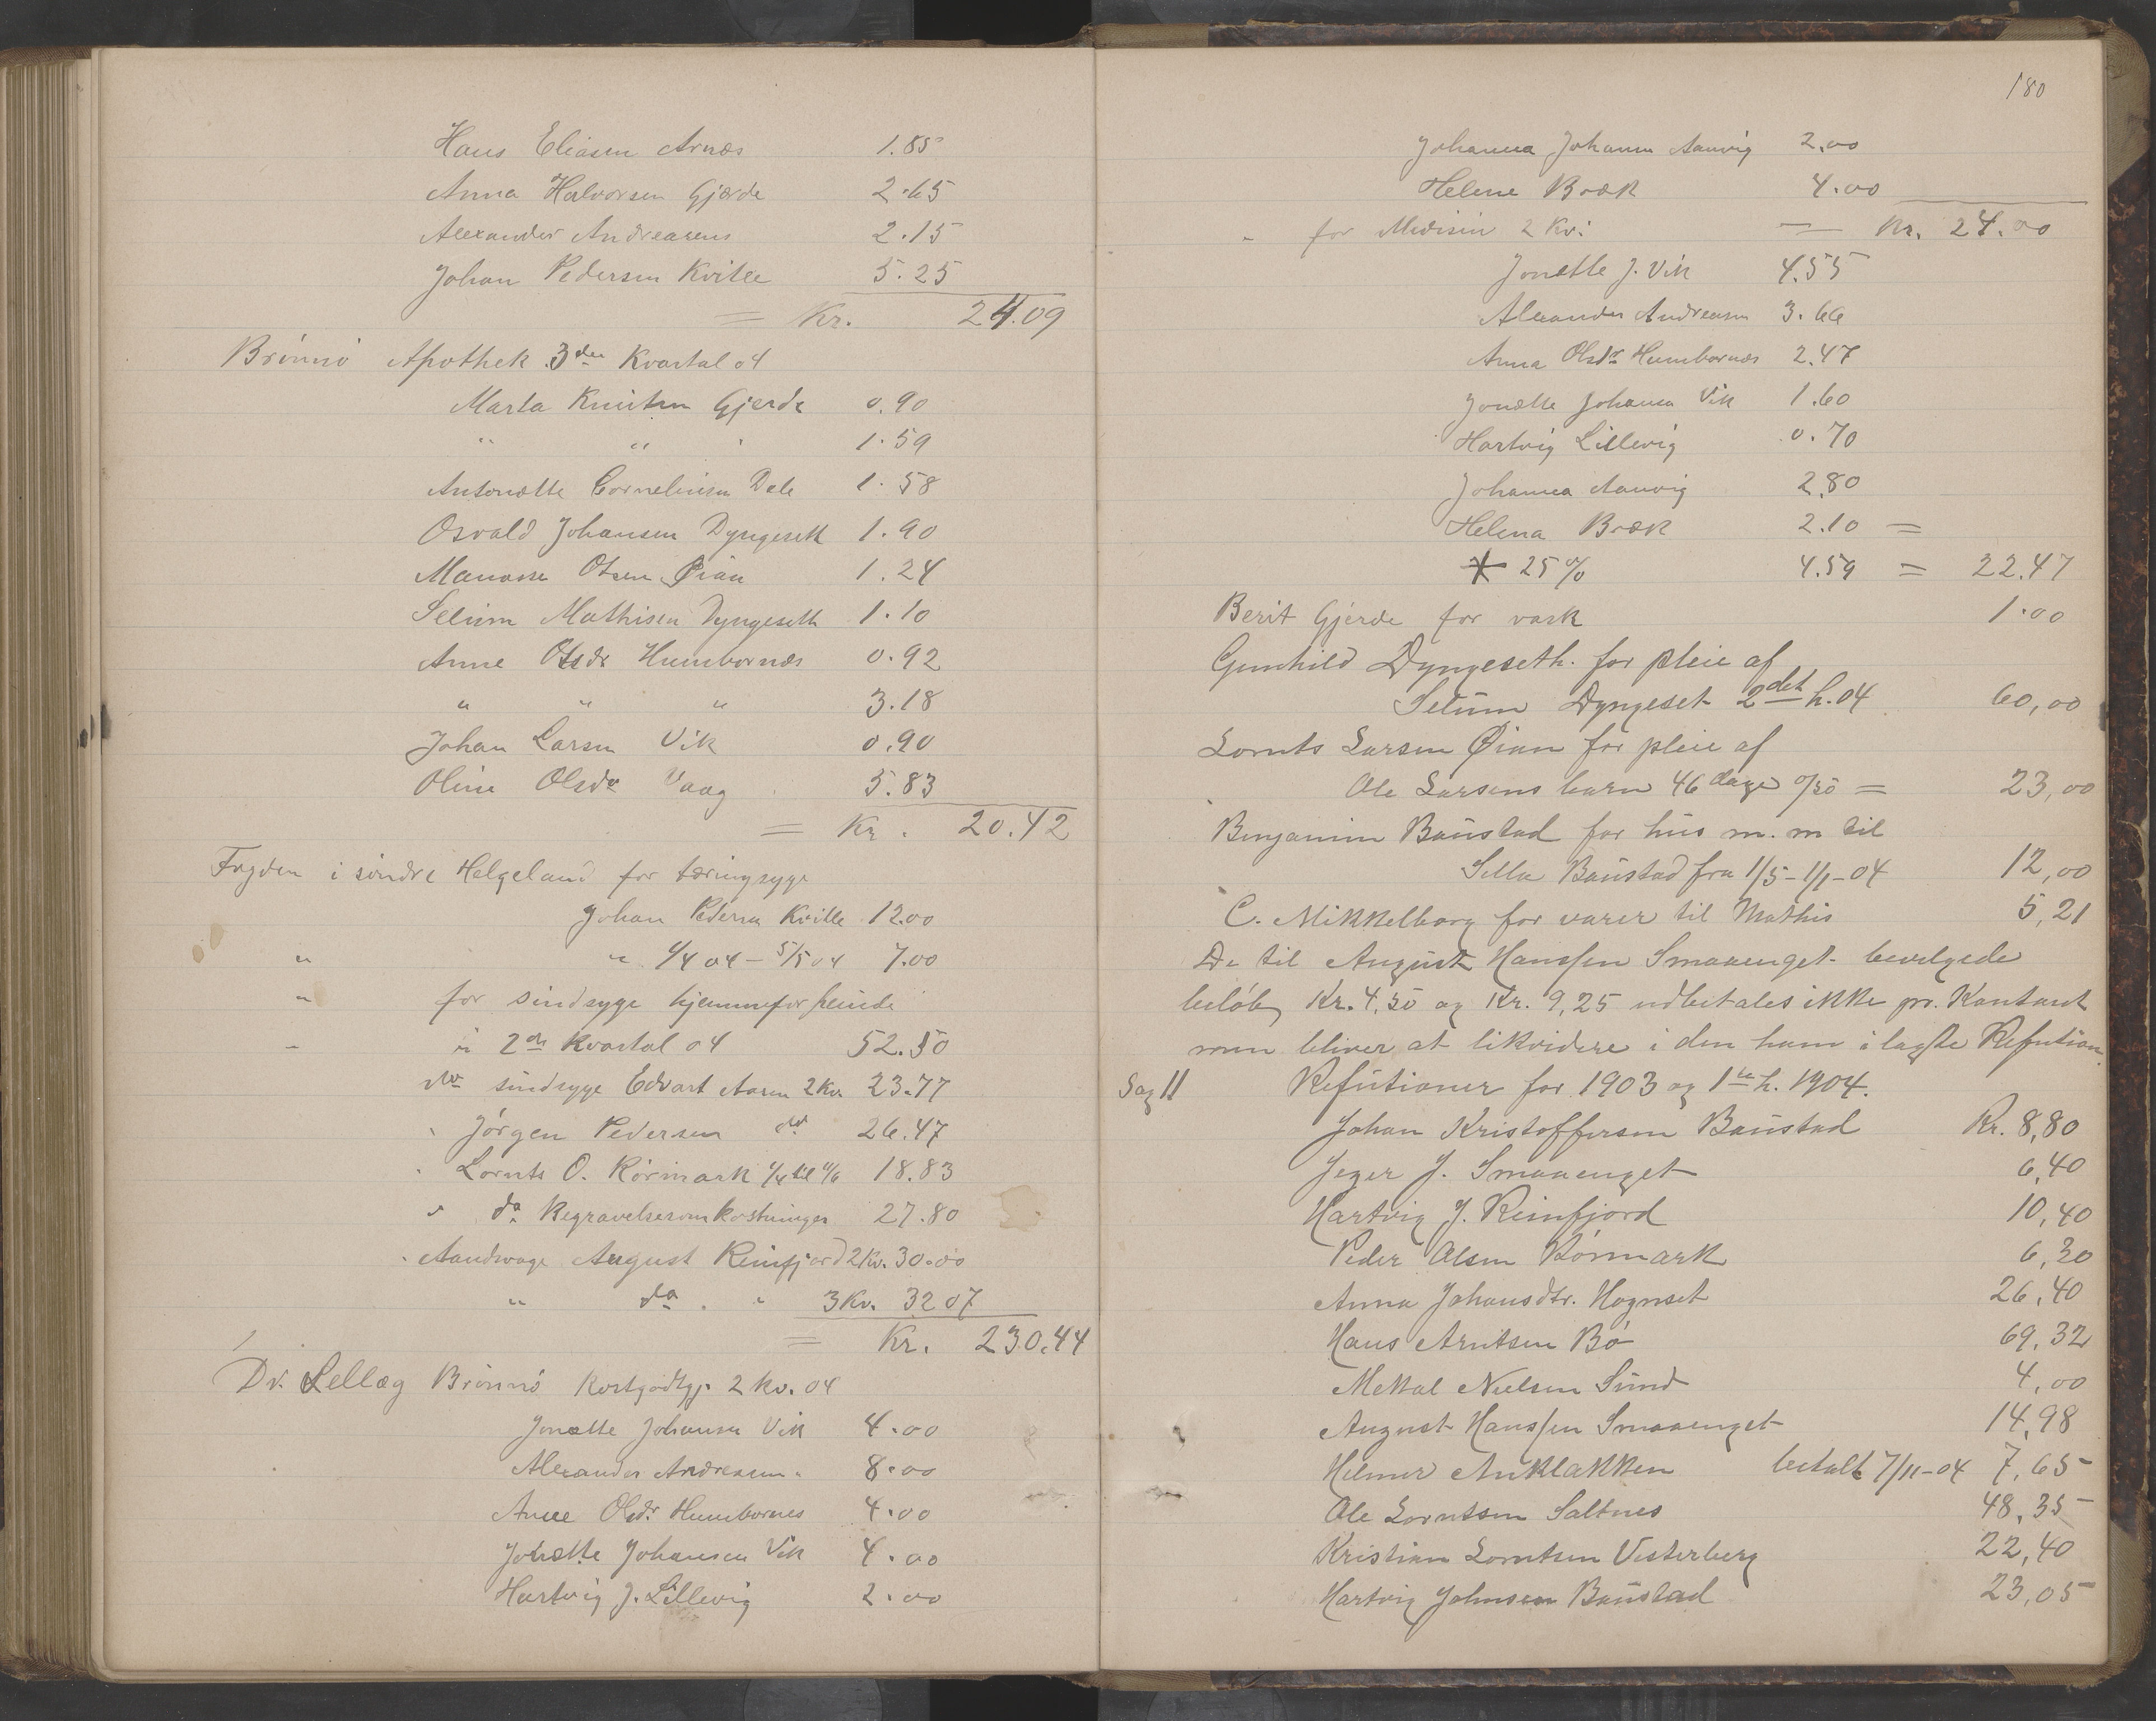 Hans Eliasen Arnæs 1.85
Anna Halvorsen Gjærde 2.65
Alexander Andreasens 2.15
Johan Pedersen Kville 5.25
= Kr. 24.09
Brönnö Apothek 3die Kvartal 04
Marta Knutsen Gjerde 0.90
" " " 1.59
Antonætte Corneliusen Dale 1.58
Osvald Johansen Dyngeseth 1.90
Manasse Olsen Øian 1.24
Selium Mathisen Dyngeseth 1.10
Anne Olsdr Humbornæs 0.92
" " " 3.18
Johan Larsen Vik 0.90
Oline Olsdr Vaag 5.83
= Kr. 20.42
Fogden i söndre Helgeland for tæringsyge
Johan Pedersen Kville 12.00
" " 1/4 04 - 5/5 04 7.00
" for sindsyge hjemmeforpleiede
" i 2det kvartal 04 52.50
do sindsyge Edvart Aasen 2 Kv. 23.77
" Jörgen Pedersen do 26.47
" Lornts O. Körmark 1/4 til 11/6 18.83
" do Begravelsesomkostninger 27.80
" Aandsvage August Reinfjord 2 Kv. 30.00
" do " 3 Kv. 32 07
= Kr. 230.44
Dr. Lellæg Brönnö Kostgodtgj. 2 kv. 04
Jonætte Johansen Vik 4.00
Alexander Andreasen 8.00
Anne Olsdr. Humbornes 4.00
Jonætte Johansen Vik 4.00
Hartvig J. Lillevig 2.00
180
Johanna Johansen Aanvig 2,00
Helene Bræk 4.00
" for Medisin 2 Kv: = Kr. 24.00
Jonætte J. Vik 4.55
Alexander Andreasen 3.66
Anna Olsdr Humbornæs 2.47
Jonætte Johansen Vik 1.60
Hartvig Lillevig 0.70
Johanna Aanvig 2.80
Helena Bræk 2.10 =
* 25 % 4.59 = 22.47
Berit Gjerde for vask 1.00
Gunhild Dyngeseth for pleie af
Selium Dyngeset 2det h. 04 60,00
Lornts Larsen Øian for pleie af
Ole Larsens barn 46 dage 0/50 = 23,00
Benjamin Baustad for hus m. m til
Sella Baustad fra 1/5 - 1/1 - 04 12,00
C. Mikkelborg for varer til Mathis 5,21
De til August Hanssen Smaaenget bevilgede
belöb Kr. 4,50 og Kr. 9,25 udbetales ikke pr. Kontant
men bliver at likvidere i den ham ilagte Refution.
Sag 11 Refutioner for 1903 og 1ste h. 1904.
Johan Kristoffersen Baustad Kr. 8,80
Jeger J. Smaaenget 6,40
Hartvig J. Reinfjord 10,40
Peder Olsen Körmark 6,30
Anna Johansdtr. Hognset 26,40
Hans Arntsen Bö 69,32
Mekal Nielsen Sund 4,00
August Hanssen Smaaenget 14,98
Helmer Anklakken betalt 7/11-04 7,65
Ole Lorntsen Saltnes 48,35
Kristian Lorntsen Vesterberg 22,40
Hartvig Johnsen Baustad 23,05